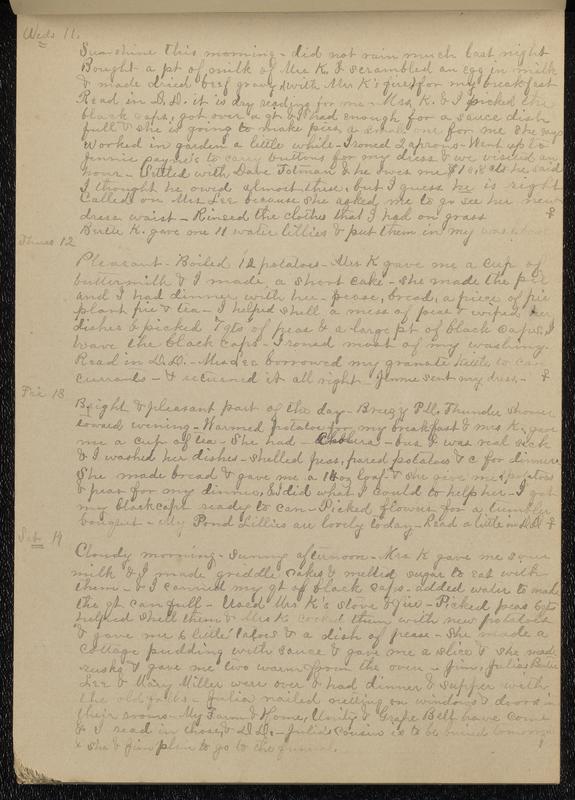 Weds 11.
Sunshine this morning - did not rain much last night
Bought a pt of milk of Mrs K. & scrambled an egg in milk
& made dried beef gravy, with Mrs K's fire for my breakfast
Read in D.D. it is dry reading for me - Mrs K. & I picked the
black caps, got over a qt & had enough for a sauce dish
full & she is going to make pies, a small one for me she says
Worked in garden a little while - Ironed 2 aprons - Went up to
Jennie Payne's to carry buttons for my dress & we visited an
hour - Settled with Dave Totman & he owes me $1 so he said
I thought he owed almost three, but I guess he is right
Called on Mrs Lee because she asked me to go see her new
dress waist - Rinsed the clothes that I had on grass &
Bertie K. gave me 11 water lillies & put them in my
Thurs 12
Pleasant - Boiled 12 potatoes - Mrs K gave me a cup of
buttermilk & I made a short cake - She made the pie
and I had dinner with her - pease, bread, a piece of pie
plant pie & tea - I helped shell a mess of peas & wiped her
dishes & picked 7 qts of peas & a large pt of black caps, I
have the black caps - Ironed most of my washing
Read in D.D. - Mrs Lee borrowed my granite kettle to can
currants - & returned it all right - Jennie sent my dress - &
Fri 13
Bright & pleasant part of the day - Breezy P.M. Thunder shower
toward evening - Warmed potatoes for my breakfast & Mrs K. gave
me a cup of tea - She had - - but I was real sick
& I washed her dishes - shelled peas, pared potatoes & c for dinner
She made bread & gave me a loaf & she gave me potatoes
& peas for my dinner, & I did what I could to help her - I got
my blackcaps ready to can - Picked flowers for a tumbler
bouquet - My Pond Lillies are lovely today - Read a little in D.D. &
Sat 14
Cloudy morning - Sunny afternoon - Mrs K gave me sour
milk & I made griddle cakes & melted sugar to eat with
them - & I canned my qt of black caps - added water to make
the qt can full - Used Mrs K's stove & fire - Picked peas 6 qts
helped shell them & Mrs K cooked them with new potatoes
& gave me 6 little tatoes & a dish of pease - She made a
cottage pudding with sauce & gave me a slice & she made
rusks & gave me two warm from the oven - Jim, Julia, Bertie
Lee & Mary Miller were over & had dinner & supper with
the old folks - Julia nailed netting on windows & doors in
their rooms - My Farm & Home, Unity & Grape Belt have come
& I read in those, & D.D. - Julia's cousin is to be buried tomorrow
& she & Jim plan to go to the funeral.